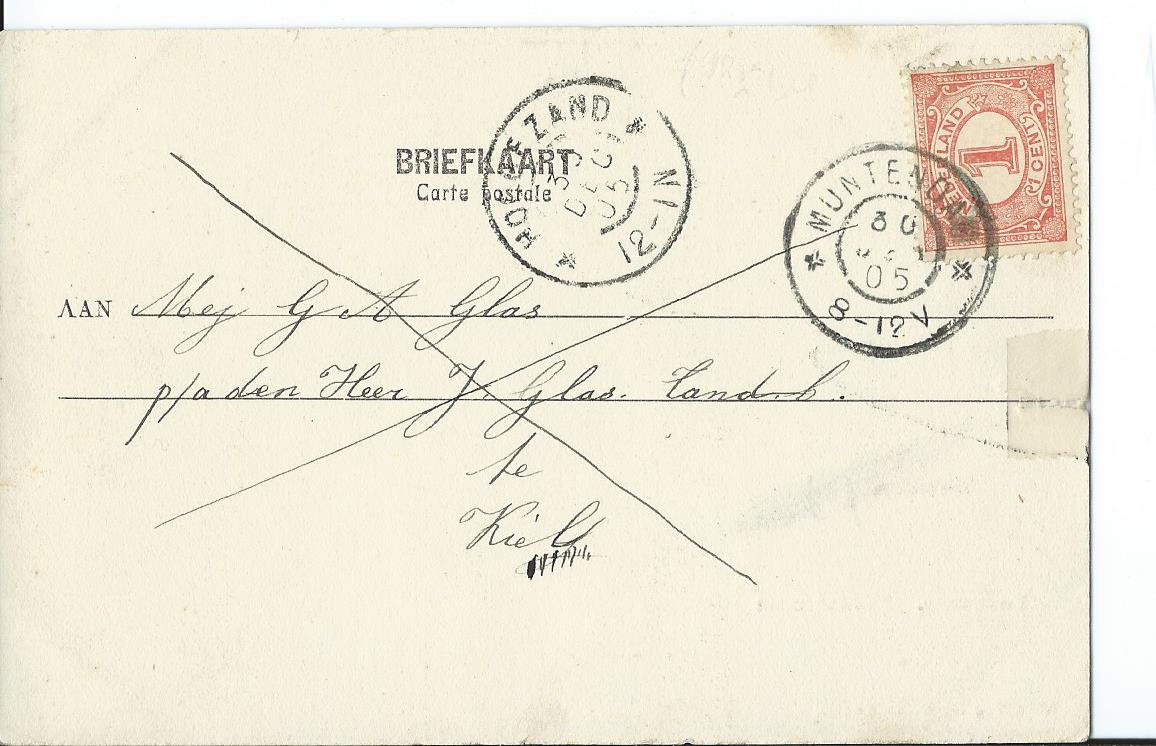 BRIEFKAART
Carte postale
HOOGEZAND
30 DEC 05
12-1N
NEDERLAND
1
1 CENT
MUNTENDAM
30
DEC
05
8-12V
AAN Mej G A Glas
p/a den Heer J. Glas. Landb.
te
Kiel